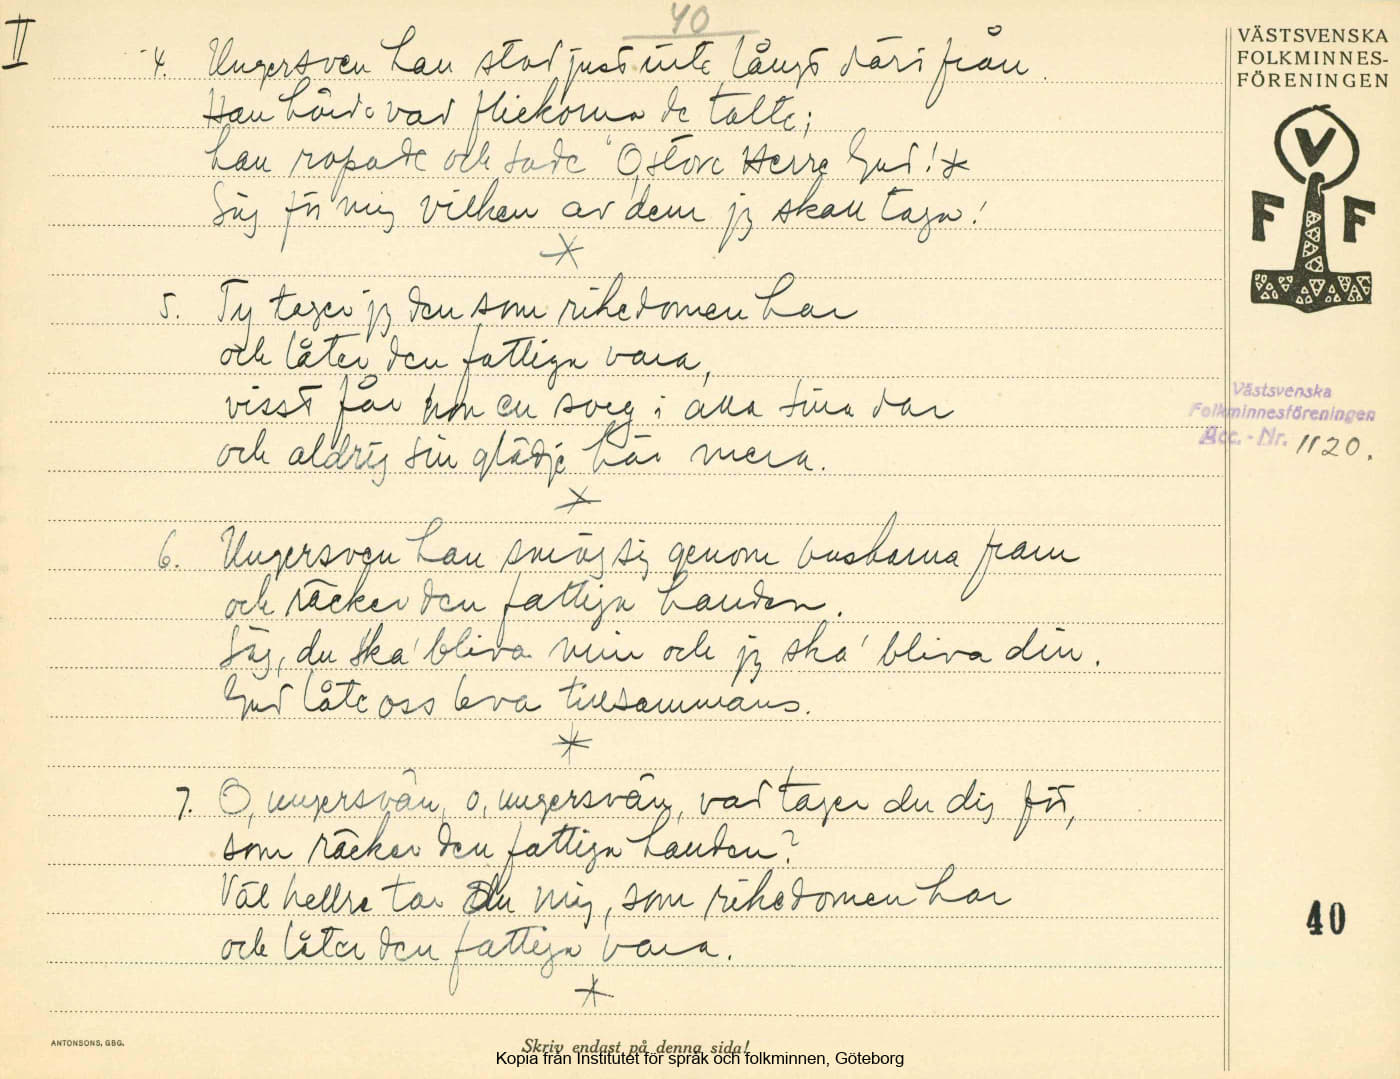 II
40
VÄSTSVENSKA
FOLKMINNES-
FÖRENINGEN
4. Ungersven han stod just inte långt därifrån.
Han hörde vad flickorna de talte;
han ropade och sade "O, store Herre Gud!
Säg för mig vilken av dem jg skall taga!
5. Ty tager jg den som rikedomen har
och låter den fattiga vara,
visst får hon en sorg i alla sina dar
och aldrig sin glädje här mera.
6. Ungersven han smög sig genom buskarna fram
och räcker den fattiga handen.
Säg, du ska' bliva min och jg ska' bliva din.
Gud låte oss leva tillsammans.
7. O, ungersvän, o, ungersvän, vad tager du dig för,
som räcker den fattiga handen?
Väl hellre tar du mig, som rikedomen har
och låter den fattiga vara.
V
F F
Västsvenska
Folkminnesföreningen
Acc. - Nr. 1120.
40
ANTONSONS, GBG.
Skriv endast på denna sida!
Kopia från Institutet för språk och folkminnen, Göteborg